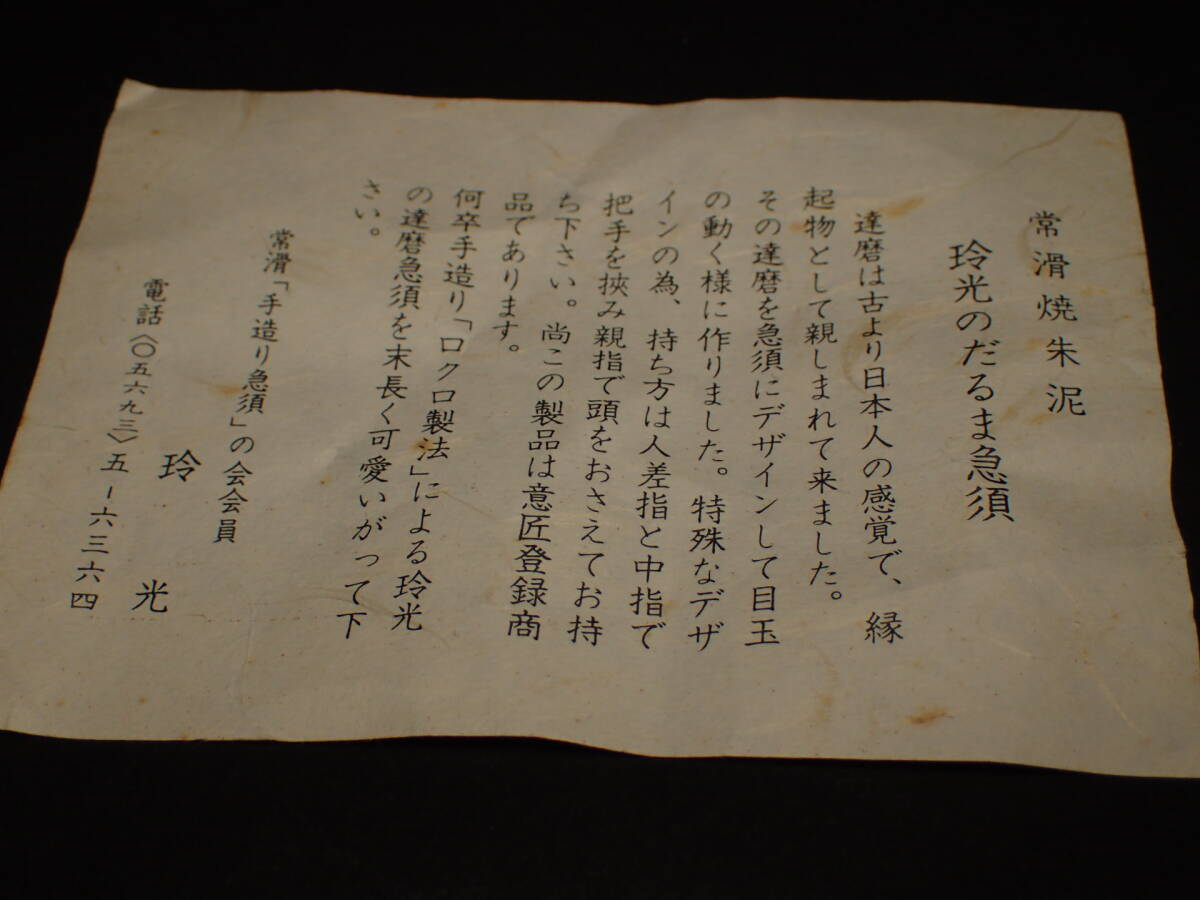 常滑焼朱泥
玲光のだるま急須
達磨は古より日本人の感覚で、縁
起物として親しまれて来ました。
その達磨を急須にデザインして目玉
の動く様に作りました。特殊なデザ
インの為、持ち方は人差指と中指で
把手を挾み親指で頭をおさえてお持
ち下さい。尚この製品は意匠登録商
品であります。
何卒手造り「ロクロ製法」による玲光
の達磨急須を末長く可愛いがって下
さい。
常滑「手造り急須」の会会員
玲光
電話〈〇五六九三〉五-六三六四